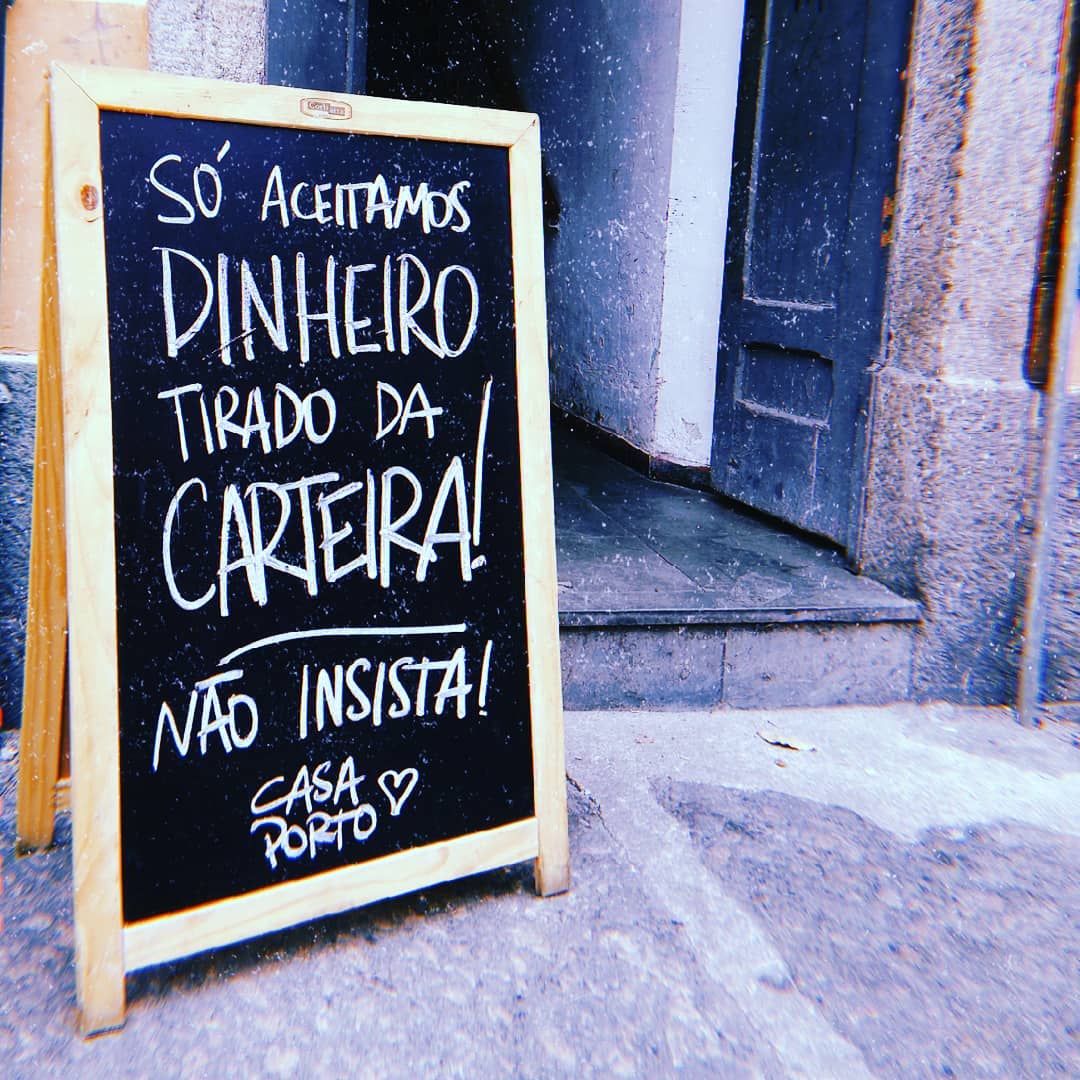 SÓ ACEITAMOS
DINHEIRO
TIRADO DA
CARTEIRA!
NÃO INSISTA!
CASA
PORTO